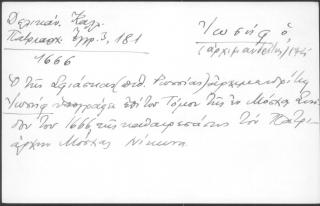 Δελικάν. Καλ.
Πατριαρχ. Έγγρ. 3, 181
1666
Ἰωσήφ ὁ,
(ἀρχιμανδρίτης)
Ὁ τῆς Ρωσσίας) ἀρχιμανδρίτης
Ἰωσήφ ὑπογράφει ἐπί τοῦ Τόμου τῆς ἐν Μόσχᾳ Συνό
δου τοῦ 1666, τῆς καθαιρεσάσης τόν Πατρι
άρχην Μόσχας Νίκωνα